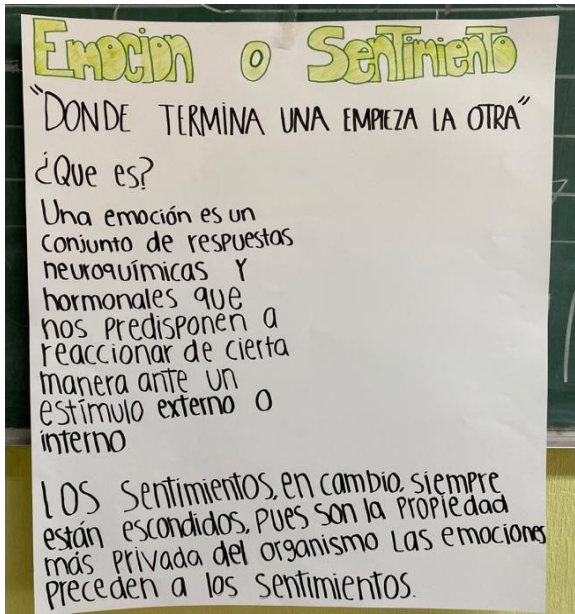 Emocion o Sentimiento
"DONDE TERMINA UNA EMPIEZA LA OTRA"
¿Que es?
Una emoción es un
conjunto de respuestas
neuroquímicas Y
hormonales que
nos predisponen a
reaccionar de cierta
manera ante un
estímulo externo o
interno
LOS sentimientos, en cambio, siempre
están escondidos, pues son la propiedad
más privada del organismo Las emociones
preceden a los sentimientos.